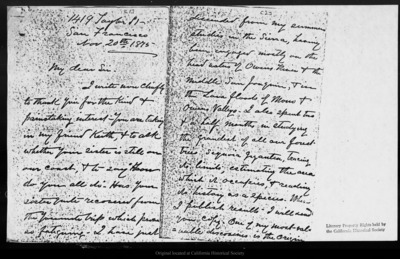 1419 Taylor St.
San Francisco
Nov 20th 1875
My dear Sir,
I write now chiefly
to thank you for the kind &
painstaking interest you are taking
in my friend Keith, & to ask
whether your sister is still on
our coast, & to say How
do you all do. Has your
sister quite recovered from
the Yosemite trip which
so fatiguing. I have just
descended from my summer
studies in the Sierra, having
been engaged mostly on the
head waters of Owens River & the
Middle San Joaquin, & in
the Lava floods of Mono &
Owens Valleys. I also spent two
& a half months in studying
the grandest of all our forest
trees Sequoia gigantea, tracing
its limits, estimating the area
which it occupies, & reading
its history as a species. When
I publish results I will send
you a copy. One of my most
discoveries is the
Literary Property Rights held by
the California Historical Society
Original located at California Historical Society